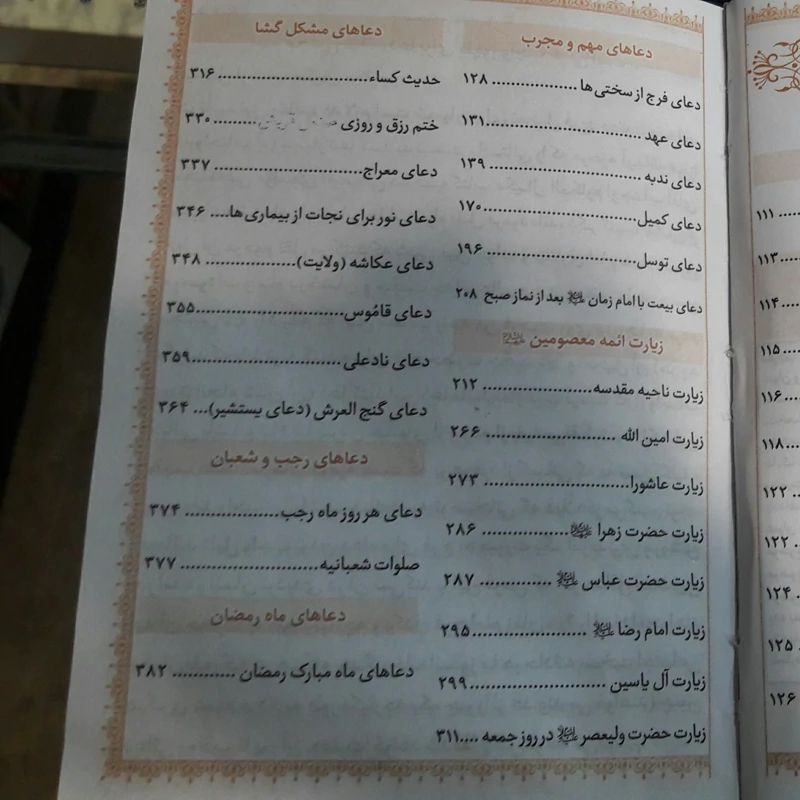 دعاهای مهم و مجرب
دعای فرج از سختی‌ها .................. ۱۲۸
دعای عهد ................................ ۱۳۱
دعای ندبه ................................ ۱۳۹
دعای کمیل ................................ ۱۷۰
دعای توسل ................................ ۱۹۶
دعای بیعت با امام زمان ﷺ بعد از نماز صبح ۲۰۸
زیارت ائمه معصومین
زیارت ناحیه مقدسه ........................ ۲۱۲
زیارت امین الله ........................ ۲۶۶
زیارت عاشورا ........................ ۲۷۳
زیارت حضرت زهرا .................. ۲۸۶
زیارت حضرت عباس ............... ۲۸۷
زیارت امام رضا ..................... ۲۹۵
زیارت آل یاسین ........................ ۲۹۹
زیارت حضرت ولیعصر در روز جمعه .... ۳۱۱
دعاهای مشکل گشا
حدیث کساء ................................ ۳۱۶
ختم رزق و روزی ۳۳۰
دعای معراج ................................ ۳۳۷
دعای نور برای نجات از بیماری ها .... ۳۴۶
دعای عکاشه (ولایت) .................. ۳۴۸
دعای قاموس ........................... ۳۵۵
دعای نادعلی ........................... ۳۵۹
دعای گنج العرش (دعای یستشیر) ... ۳۶۴
دعاهای رجب و شعبان
دعای هر روز ماه رجب .................. ۳۷۴
صلوات شعبانیه ........................... ۳۷۷
دعاهای ماه رمضان
دعاهای ماه مبارک رمضان ............ ۳۸۲
۱۱۱
۱۱۳
۱۱۴
۱۱۵
۱۱۶
۱۱۸
۱۲۲
۱۲۲
۱۲۴
۱۲۵
۱۲۶